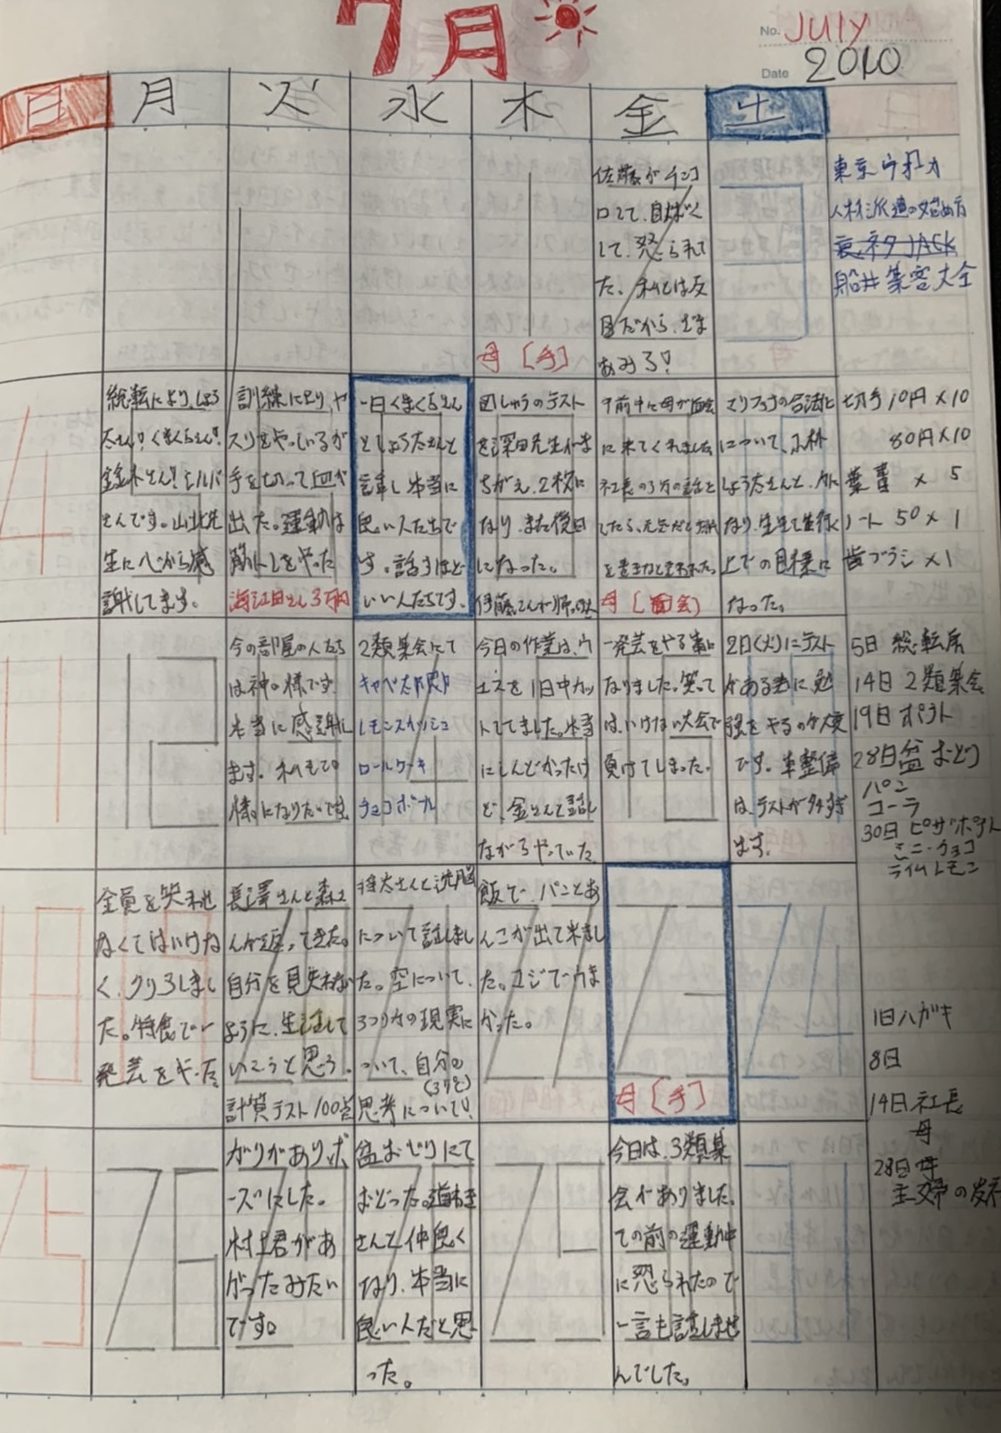 7月
No. JULY
Date 2010
日 月 火 水 木 金 土
佐藤がイン
口して、自ばく
して、怒られて
た。私とは反
目だから、ざま
あみろ!
1
2
3
母 [手]
東京ウォーカ
人材派遣の始め方
裏ネタJACK
船井集客大全
4
総転により、しょう
太さん! くまくらさん!
鈴木さん! ミルバ
さんです。山北先
生に心から感
謝してます。
訓練に入り、ヤ
スリをやっているが
手を切って血が
出た。運動は
筋トレをやった
海江田さん3万円
一日くまくらさん
としょう太さんと
話し本当に
良い人たちで
す。話すほど
いい人たちです。
回しゅうのテスト
を深田先生がま
ちがえ、2枚に
なり、また後日
になった。
午前中に母が面会
に来てくれました
社長の3分の話を
したら
母 [面会]
について、小林
しょう太さんと、
なり、生きて行く
上での目標に
なった。
切手10円×10
80円×10
葉書 × 5
ノート 50×1
歯ブラシ×1
11
12
今の部屋の人たち
は神の様です
本当に感謝し
ます。私もその
様になりたいです
2類集会にて
キャベ太郎
レモンスカッシュ
ロールケーキ
チョコボール
今日の作業は、ウ
エスを1日中カッ
トしてました。本当
にしんどかったけ
ど、金さんと話し
ながらやっていた
一発芸をやる事に
なりました。笑って
はいけない大会で
負けてしまった。
2日(火)にテスト
がある為に勉
強をやるのが大変
です。車整備
は、テストが多すぎ
ます。
5日 総転房
14日 2類集会
19日 ポテト
28日 盆おどり
パン
コーラ
30日 ピザポテト
ミニチョコ
ライムレモン
18
全員を笑わせ
なくてはいけな
く、クリアしまし
た。特食で一
発芸をやった
長澤さんと森口
さんが返ってきた。
自分を見失わない
ように、生活して
いこうと思う。
計算テスト100点
翔太さんと洗脳
について話しまし
た。空について、
3つの現実に
ついて、自分の
思考について!
飯で、パンとあ
んこが出て来まし
た。マジでうま
かった。
23
母 [手]
24
1日 ハガキ
8日
14日 社長
母
28日 母
主婦の友
25
26
がりがあり、ボ
ーズにした。
村上君があ
がったみたい
です。
盆おどりにて
おどった。
さんと仲良く
なり、本当に
良い人だと思
った。
29
今日は、3類集
会がありました。
その前の運動中
に怒られたので
一言も話しませ
んでした。
31